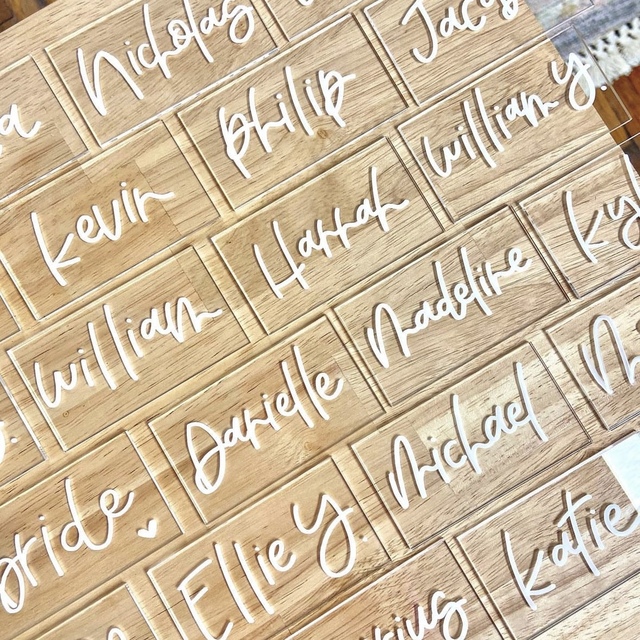 Nicholas
Jac
Kevin
Philip
William Y.
William
Hannah
Madeline
Ky
Bride
Danielle
Michael
Ellie Y.
Katie